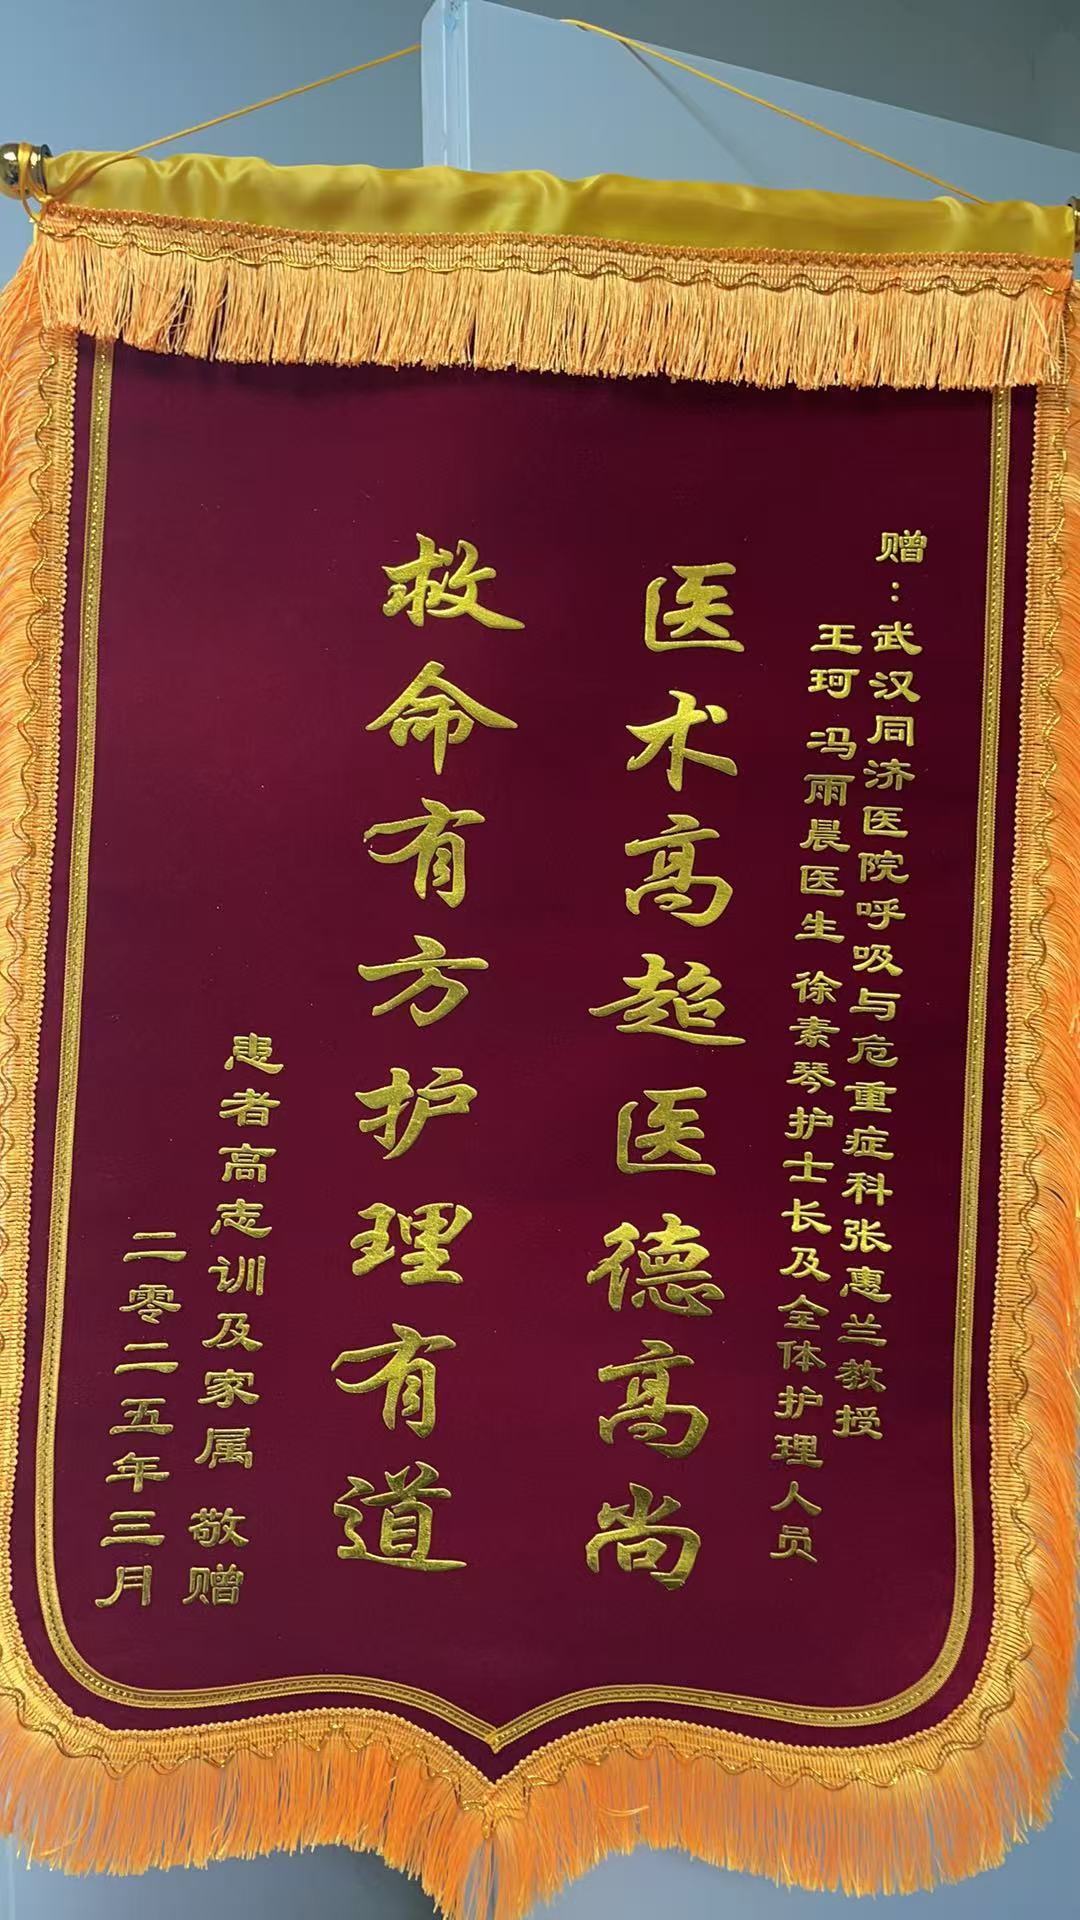 赠：武汉同济医院呼吸与危重症科张惠兰教授
王珂 冯雨晨医生 徐素琴护士长及全体护理人员
医术高超医德高尚
救命有方护理有道
患者高志训及家属 敬赠
二零二五年三月